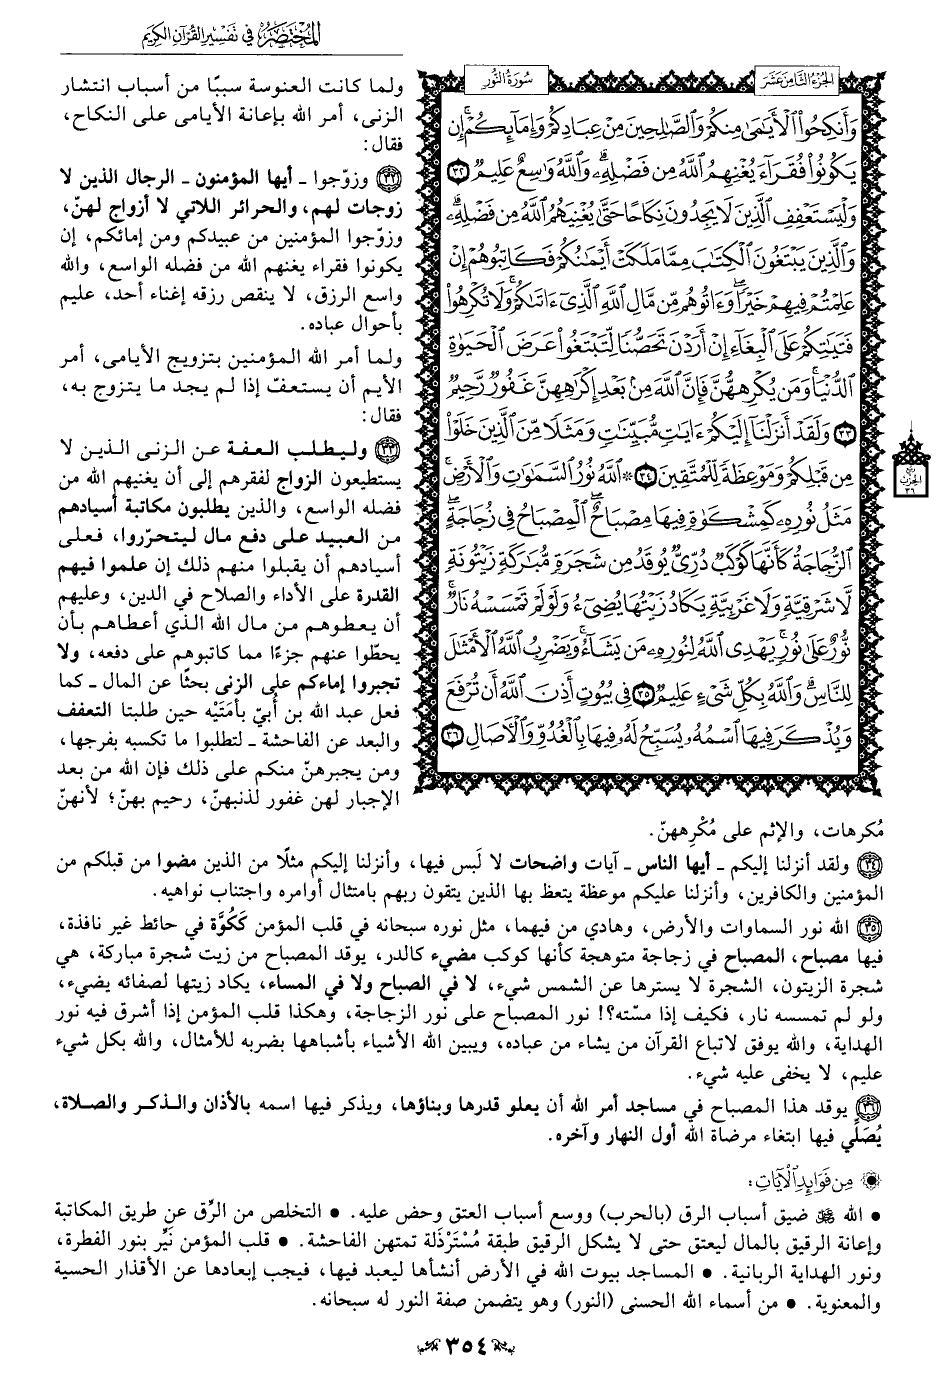 المختصر في تفسير القرآن الكريم
الجزء الثامن عشر
سورة النور
وَأَنكِحُوا۟ ٱلْأَيَـٰمَىٰ مِنكُمْ وَٱلصَّـٰلِحِينَ مِنْ عِبَادِكُمْ وَإِمَآئِكُمْ ۚ إِن
يَكُونُوا۟ فُقَرَآءَ يُغْنِهِمُ ٱللَّهُ مِن فَضْلِهِۦ ۗ وَٱللَّهُ وَٰسِعٌ عَلِيمٌ ٣٢
وَلْيَسْتَعْفِفِ ٱلَّذِينَ لَا يَجِدُونَ نِكَاحًا حَتَّىٰ يُغْنِيَهُمُ ٱللَّهُ مِن فَضْلِهِۦ ۗ
وَٱلَّذِينَ يَبْتَغُونَ ٱلْكِتَـٰبَ مِمَّا مَلَكَتْ أَيْمَـٰنُكُمْ فَكَاتِبُوهُمْ إِنْ
عَلِمْتُمْ فِيهِمْ خَيْرًا ۖ وَءَاتُوهُم مِّن مَّالِ ٱللَّهِ ٱلَّذِىٓ ءَاتَىٰكُمْ ۚ وَلَا تُكْرِهُوا۟
فَتَيَـٰتِكُمْ عَلَى ٱلْبِغَآءِ إِنْ أَرَدْنَ تَحَصُّنًا لِّتَبْتَغُوا۟ عَرَضَ ٱلْحَيَوٰةِ
ٱلدُّنْيَا ۚ وَمَن يُكْرِههُّنَّ فَإِنَّ ٱللَّهَ مِنۢ بَعْدِ إِكْرَٰهِهِنَّ غَفُورٌ رَّحِيمٌ
٣٣ وَلَقَدْ أَنزَلْنَآ إِلَيْكُمْ ءَايَـٰتٍ مُّبَيِّنَـٰتٍ وَمَثَلًا مِّنَ ٱلَّذِينَ خَلَوْا۟
مِن قَبْلِكُمْ وَمَوْعِظَةً لِّلْمُتَّقِينَ ٣٤ ۞ ٱللَّهُ نُورُ ٱلسَّمَـٰوَٰتِ وَٱلْأَرْضِ ۚ
مَثَلُ نُورِهِۦ كَمِشْكَوٰةٍ فِيهَا مِصْبَاحٌ ۖ ٱلْمِصْبَاحُ فِى زُجَاجَةٍ ۖ
ٱلزُّجَاجَةُ كَأَنَّهَا كَوْكَبٌ دُرِّىٌّ يُوقَدُ مِن شَجَرَةٍ مُّبَـٰرَكَةٍ زَيْتُونَةٍ
لَّا شَرْقِيَّةٍ وَلَا غَرْبِيَّةٍ يَكَادُ زَيْتُهَا يُضِىٓءُ وَلَوْ لَمْ تَمْسَسْهُ نَارٌ ۚ
نُّورٌ عَلَىٰ نُورٍ ۗ يَهْدِى ٱللَّهُ لِنُورِهِۦ مَن يَشَآءُ ۚ وَيَضْرِبُ ٱللَّهُ ٱلْأَمْثَـٰلَ
لِلنَّاسِ ۗ وَٱللَّهُ بِكُلِّ شَىْءٍ عَلِيمٌ ٣٥ فِى بُيُوتٍ أَذِنَ ٱللَّهُ أَن تُرْفَعَ
وَيُذْكَرَ فِيهَا ٱسْمُهُۥ يُسَبِّحُ لَهُۥ فِيهَا بِٱلْغُدُوِّ وَٱلْـَٔاصَالِ ٣٦
الحزب
٣٦
ولما كانت العنوسة سببًا من أسباب انتشار
الزنى، أمر الله بإعانة الأيامى على النكاح،
فقال:
٣٢ وزوّجوا ـ أيها المؤمنون ـ الرجال الذين لا
زوجات لهم، والحرائر اللاتي لا أزواج لهنّ،
وزوّجوا المؤمنين من عبيدكم ومن إمائكم، إن
يكونوا فقراء يغنهم الله من فضله الواسع، والله
واسع الرزق، لا ينقص رزقه إغناء أحد، عليم
بأحوال عباده.
ولما أمر الله المؤمنين بتزويج الأيامى، أمر
الأيم أن يستعفّ إذا لم يجد ما يتزوج به،
فقال:
٣٣ وليطلب العفة عن الزنى الذين لا
يستطيعون الزواج لفقرهم إلى أن يغنيهم الله من
فضله الواسع، والذين يطلبون مكاتبة أسيادهم
من العبيد على دفع مال ليتحرّروا، فعلى
أسيادهم أن يقبلوا منهم ذلك إن علموا فيهم
القدرة على الأداء والصلاح في الدين، وعليهم
أن يعطوهم من مال الله الذي أعطاهم بأن
يحطّوا عنهم جزءًا مما كاتبوهم على دفعه، ولا
تجبروا إماءكم على الزنى بحثًا عن المال ـ كما
فعل عبد الله بن أُبيّ بأَمَتَيْه حين طلبتا التعفف
والبعد عن الفاحشة ـ لتطلبوا ما تكسبه بفرجها،
ومن يجبرهنّ منكم على ذلك فإن الله من بعد
الإجبار لهن غفور لذنبهنّ، رحيم بهنّ؛ لأنهنّ
مُكرهات، والإثم على مُكْرِههنّ.
٣٤ ولقد أنزلنا إليكم ـ أيها الناس ـ آيات واضحات لا لَبس فيها، وأنزلنا إليكم مثلًا من الذين مضوا من قبلكم من
المؤمنين والكافرين، وأنزلنا عليكم موعظة يتعظ بها الذين يتقون ربهم بامتثال أوامره واجتناب نواهيه.
٣٥ الله نور السماوات والأرض، وهادي من فيهما، مثل نوره سبحانه في قلب المؤمن كَكُوَّة في حائط غير نافذة،
فيها مصباح، المصباح في زجاجة متوهجة كأنها كوكب مضيء كالدر، يوقد المصباح من زيت شجرة مباركة، هي
شجرة الزيتون، الشجرة لا يسترها عن الشمس شيء، لا في الصباح ولا في المساء، يكاد زيتها لصفائه يضيء،
ولو لم تمسسه نار، فكيف إذا مسّته؟! نور المصباح على نور الزجاجة، وهكذا قلب المؤمن إذا أشرق فيه نور
الهداية، والله يوفق لاتباع القرآن من يشاء من عباده، ويبين الله الأشياء بأشباهها بضربه للأمثال، والله بكل شيء
عليم، لا يخفى عليه شيء.
٣٦ يوقد هذا المصباح في مساجد أمر الله أن يعلو قدرها وبناؤها، ويذكر فيها اسمه بالأذان والذكر والصلاة،
يُصَلِّي فيها ابتغاء مرضاة الله أول النهار وآخره.
من فوائد الآيات:
• الله ﷻ ضيق أسباب الرق (بالحرب) ووسع أسباب العتق وحض عليه. • التخلص من الرِّق عن طريق المكاتبة
وإعانة الرقيق بالمال ليعتق حتى لا يشكل الرقيق طبقة مُسْتَرْذَلة تمتهن الفاحشة. • قلب المؤمن نَيِّر بنور الفطرة،
ونور الهداية الربانية. • المساجد بيوت الله في الأرض أنشأها ليعبد فيها، فيجب إبعادها عن الأقذار الحسية
والمعنوية. • من أسماء الله الحسنى (النور) وهو يتضمن صفة النور له سبحانه.
٣٥٤